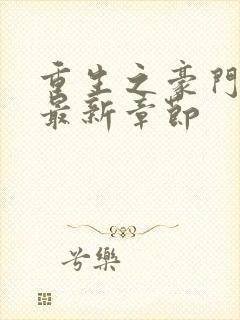 重生之豪門
最新章節
兮樂